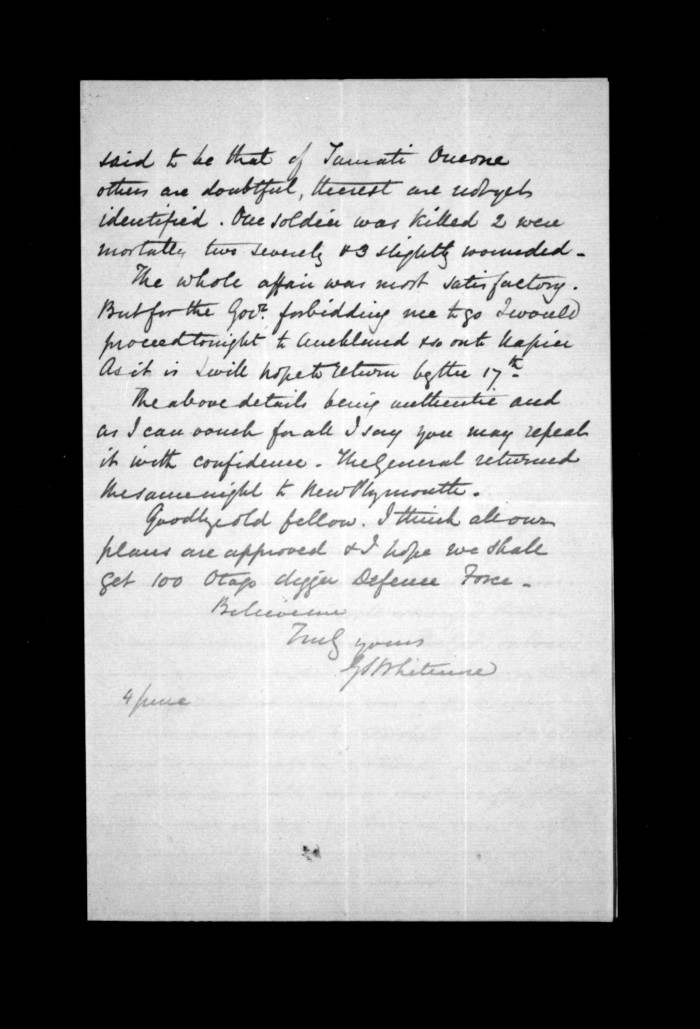 said to be that of Tamati Oneone
others are doubtful, the rest are not yet
identified. One soldier was killed 2 were
mortally two severely & 3 slightly wounded -
The whole affair was most satisfactory.
But for the Govr. forbidding me to go I would
proceed tonight to Auckland & so on to Napier
As it is I will hope to return by the 17th -
The above details being authentic and
as I can vouch for all I say you may repeat
it with confidence - The General returned
the same night to New Plymouth.
Goodbye old fellow. I think all our
plans are approved & I hope we shall
get 100 Otago digger Defence Force -
Believe me
Truly yours
GSWhitmore
4 June